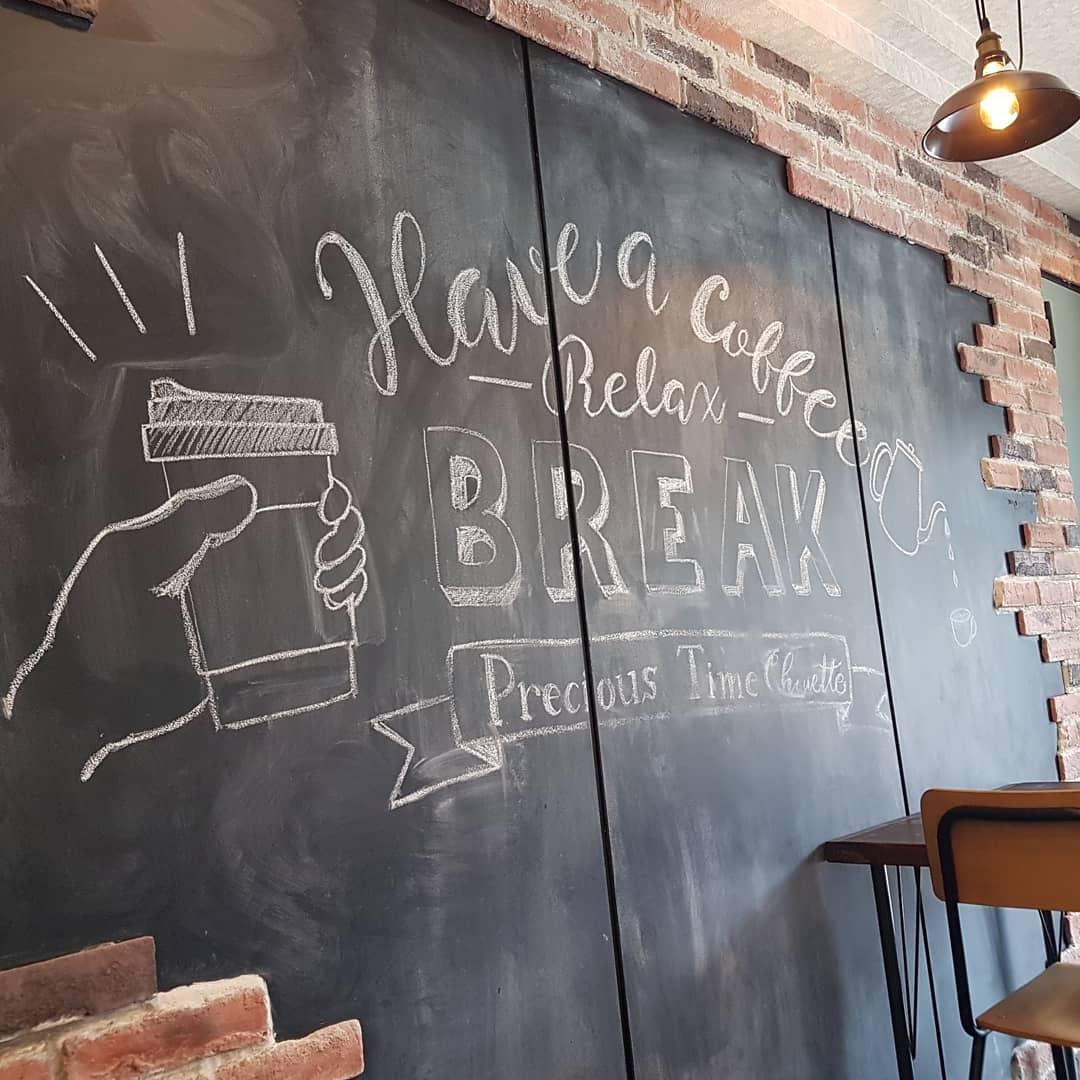 Have a Coffee
Relax
BREAK
Precious Time Chouette